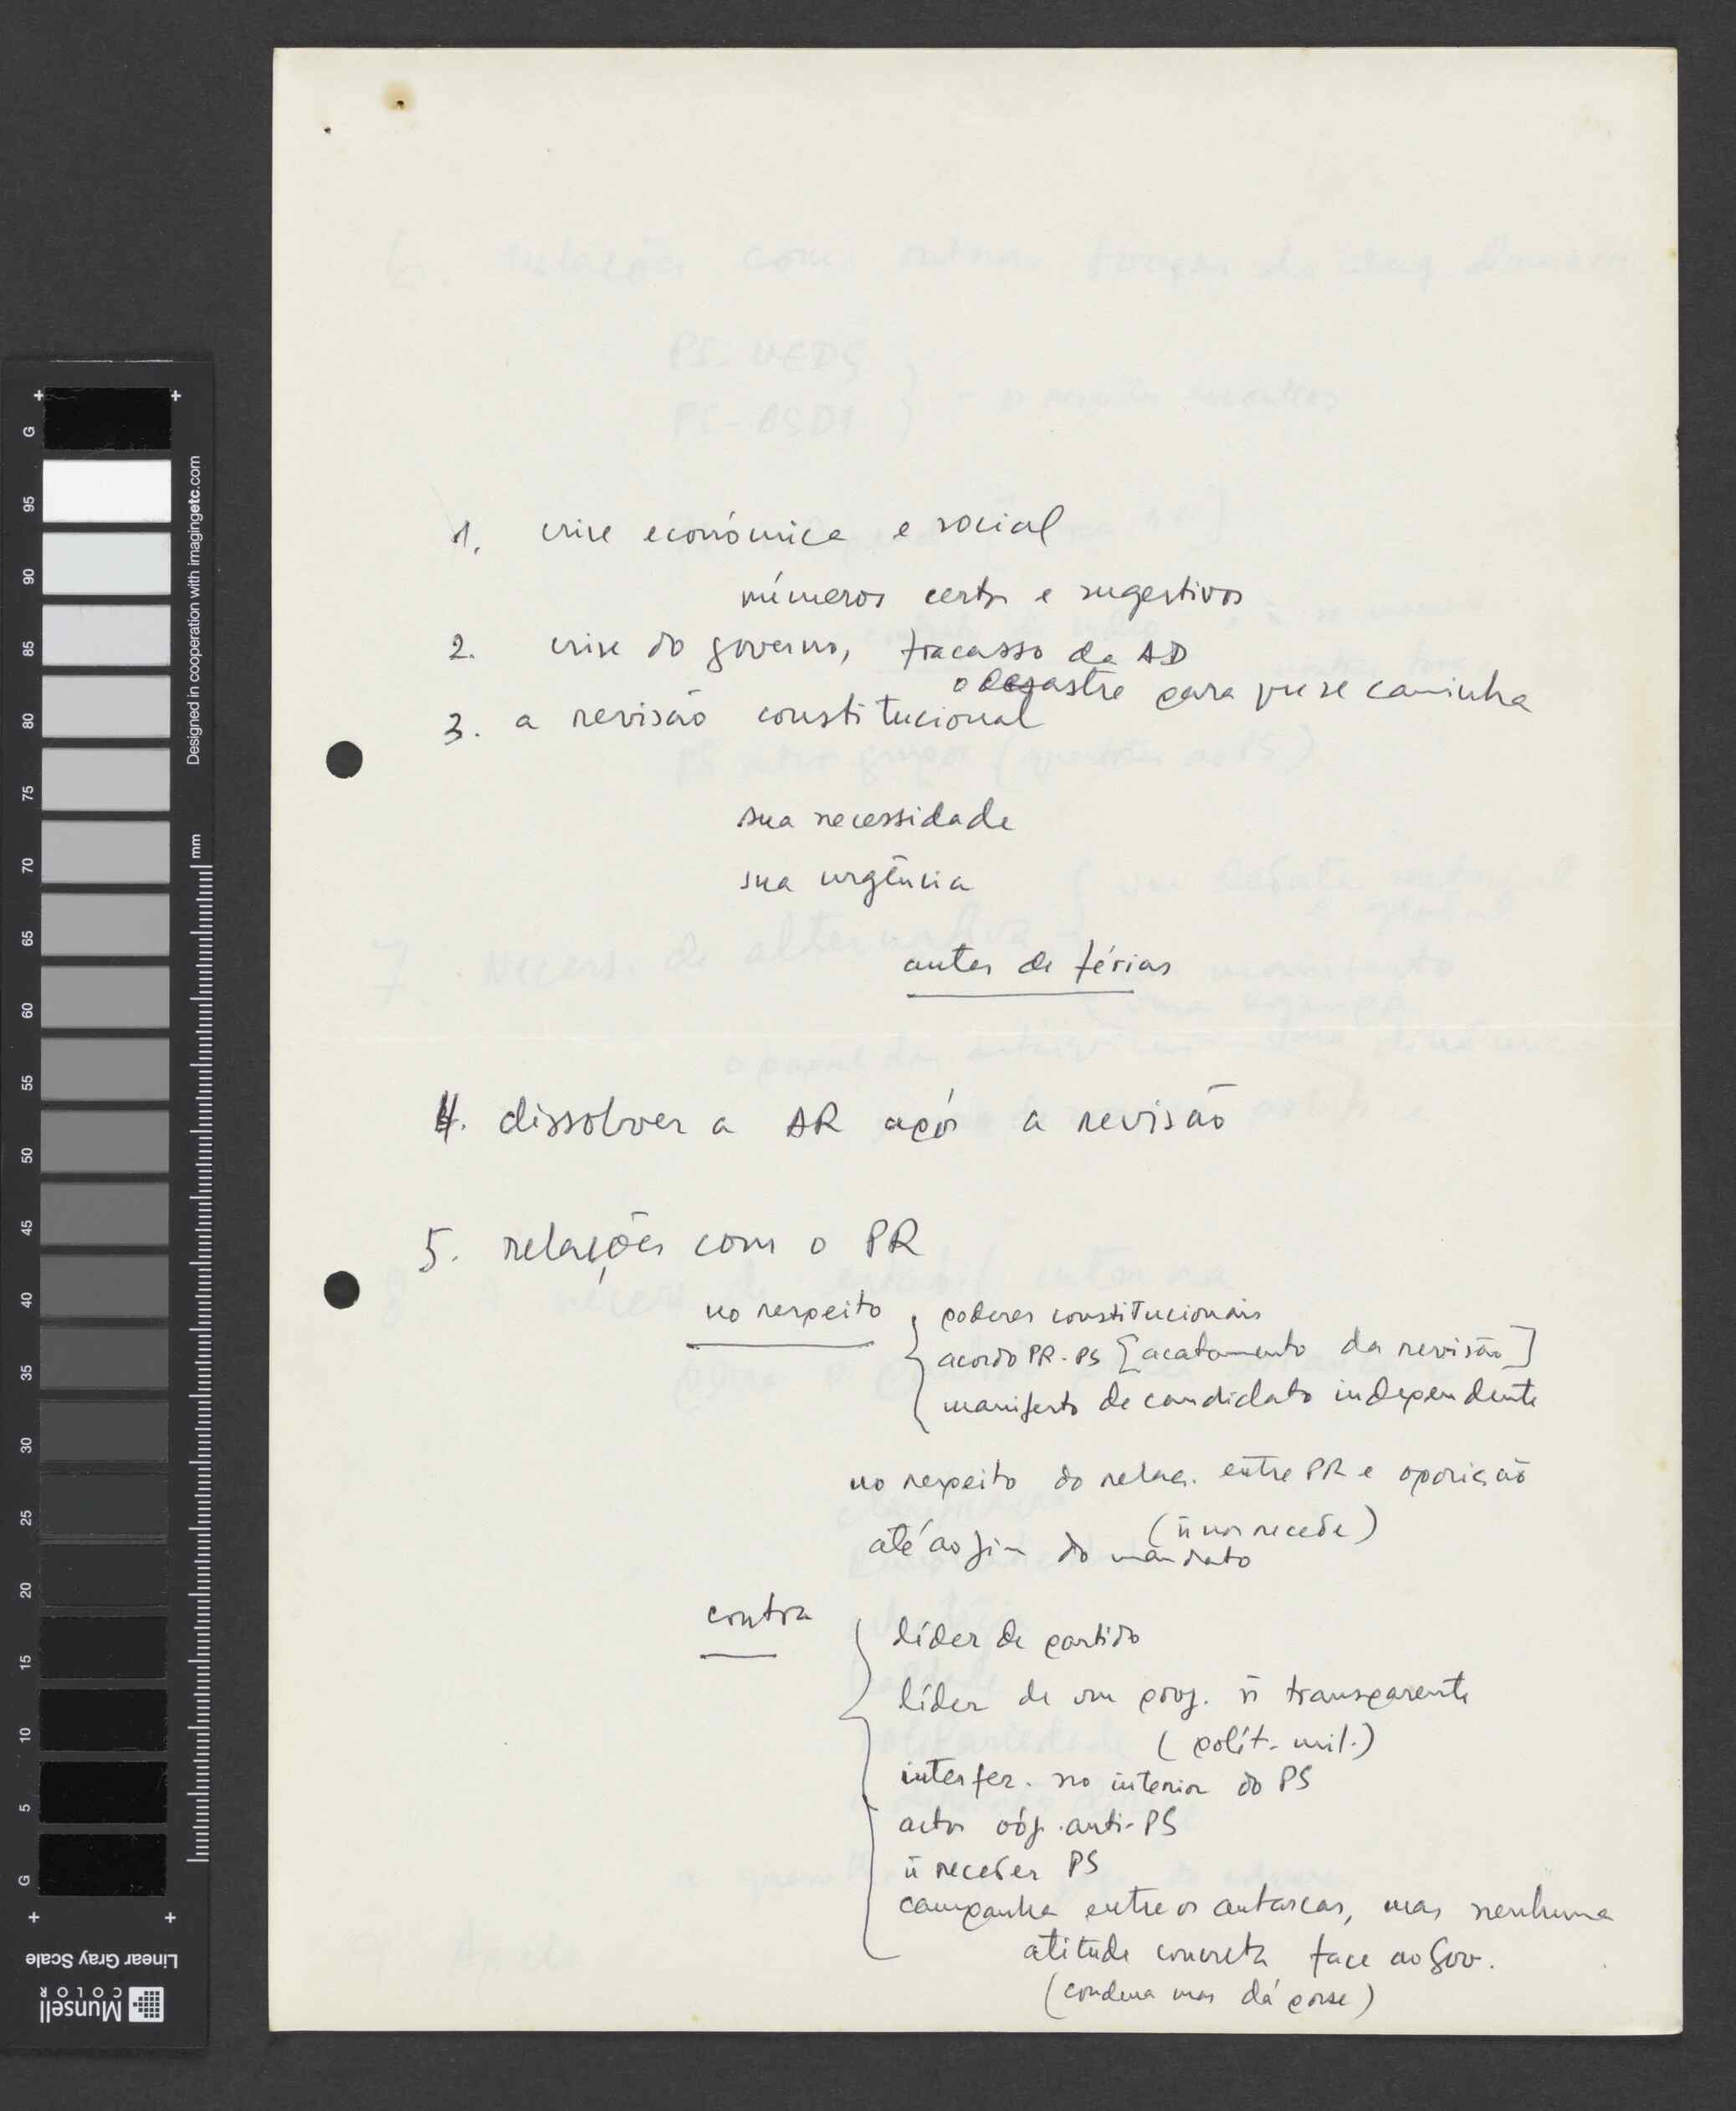 1. crise económica e social
números certos e sugestivos
2. crise do governo, fracasso da AD
o desastre para que se caminha
3. a revisão constitucional
sua necessidade
sua urgência
antes de férias
4. dissolver a AR após a revisão
5. relações com o PR
no respeito
poderes constitucionais
acordo PR-PS [acatamento da revisão]
manifesto de candidato independente
no respeito do relac. entre PR e oposição
(ñ nos recebe)
até ao fim do mandato
contra
líder de partido
líder de um proj. ñ transparente
(polít. mil.)
interfer. no interior do PS
actos obj. anti-PS
ñ receber PS
campanha entre os autarcas, mas nenhuma
atitude concreta face ao Gov.
(condena mas dá posse)
G 95 90 85 80 75 70 65 60 55 50 45 40 35 30 25 20 15 10 5 G
Designed in cooperation with imagingetc.com
mm
Linear Gray Scale
Munsell
COLOR